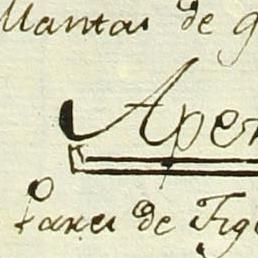 Mantas de g
Aper
Pares de Fig